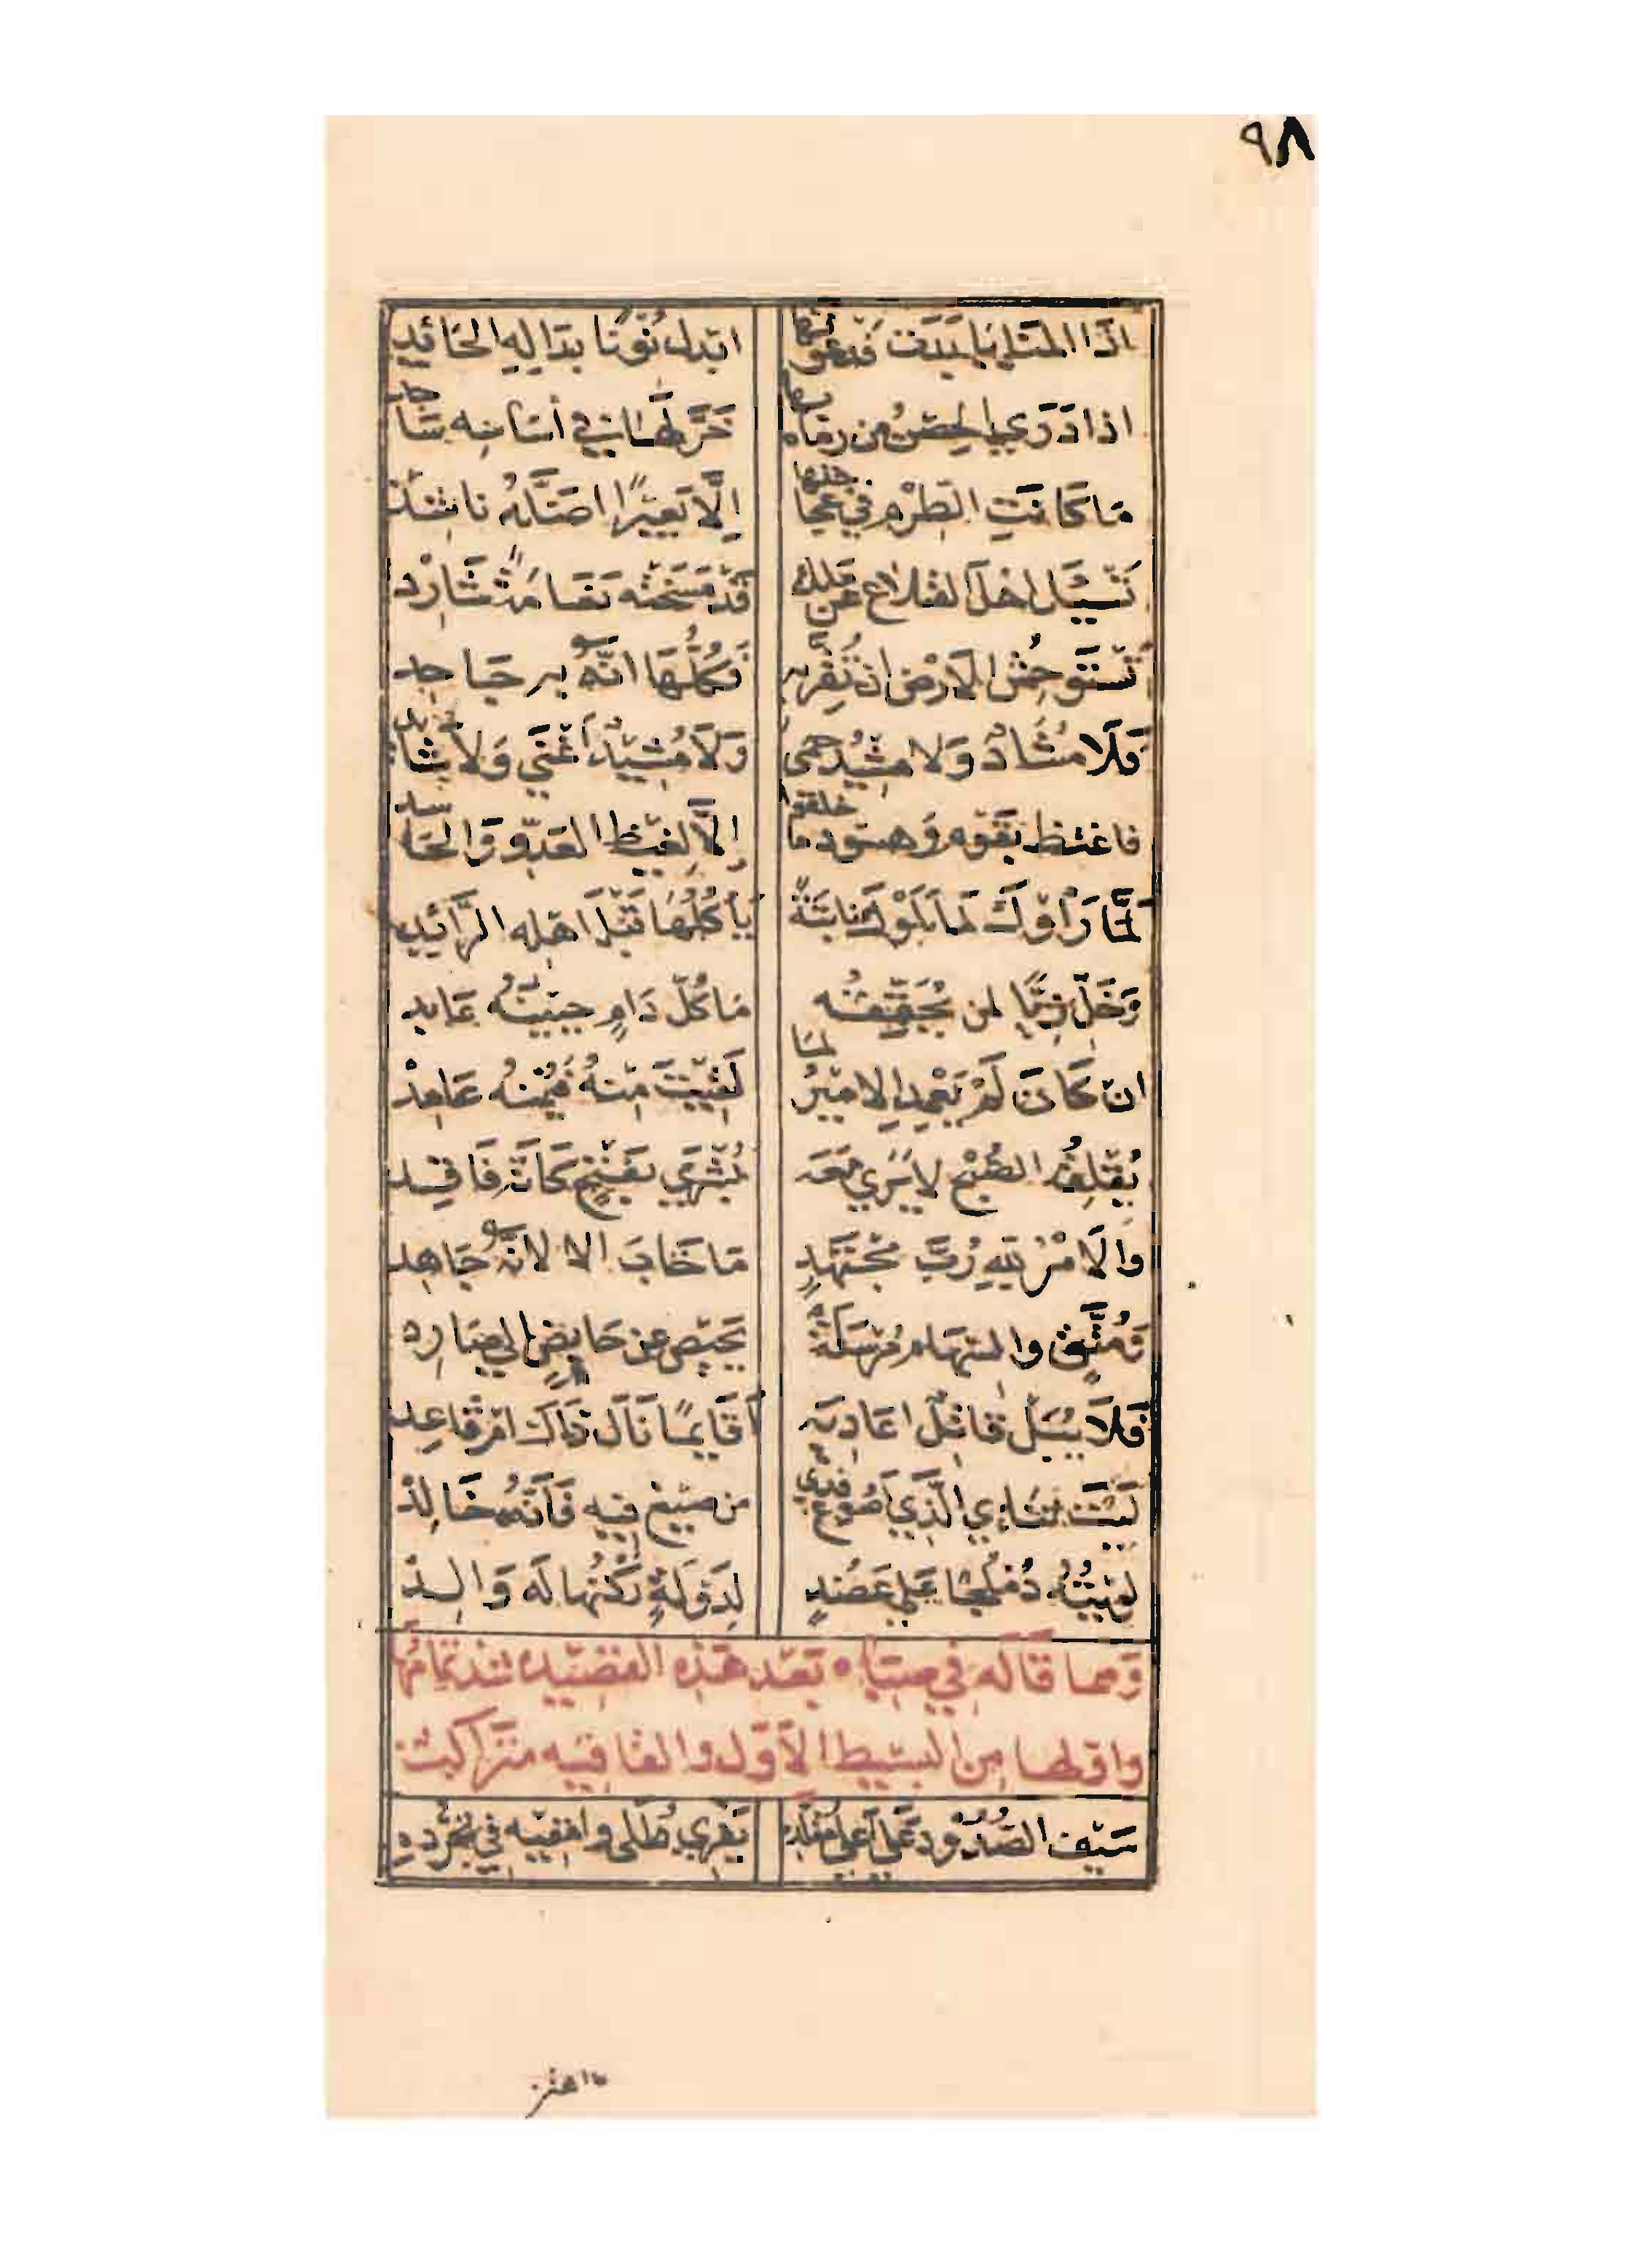 ٩٨
اذا المنايا بدت فدعوتها ابدل نونا بداله الحائد
اذا درى الحصن من رماه بها خر لها في أساسه ساجد
ما كانت الطرم في عجاجتها إلا بعيرا اضله ناشد
تسئل اهل القلاع عن ملك قد مسخته نعامة شارد
تستوحش الارض ان تقر به فكلها انه به جاحد
فلا مشاد ولا مشيد حمى ولا مشيد أغنى ولا شائد
فاغتظ بقوم وهسوذ ما خلقوا إلا لغيظ العدو والحاسد
لما رأوك لما بلوك نابتة يأكلها قبل اهله الرائد
وخل زيا لمن يحققه ما كل دام جبينه عابد
ان كان لم يعمد الامير لما لقيت منه فيمنه عامد
يقلقه الصبح لا يرى معه بشرى بفتح كانه فاقد
والامر لله رب مجتهد ما خاب الا لانه جاهد
ومتق والسهام مرسلة يحيص عن حابض الى صارد
فلا يبل قاتل اعاديه أقايما نال ذاك ام قاعد
ليت ثنائي الذي اصوغ فدى من صيغ فيه فانه خالد
لويته دملجا على عضد لدولة ركنها له والد
ومما قاله في صباه بعد هذه القصيده
واولها من البسيط الاول والقافيه متراكب
سيف الصدود على اعلى مقلده يفري طلى وامقيه في تجرده